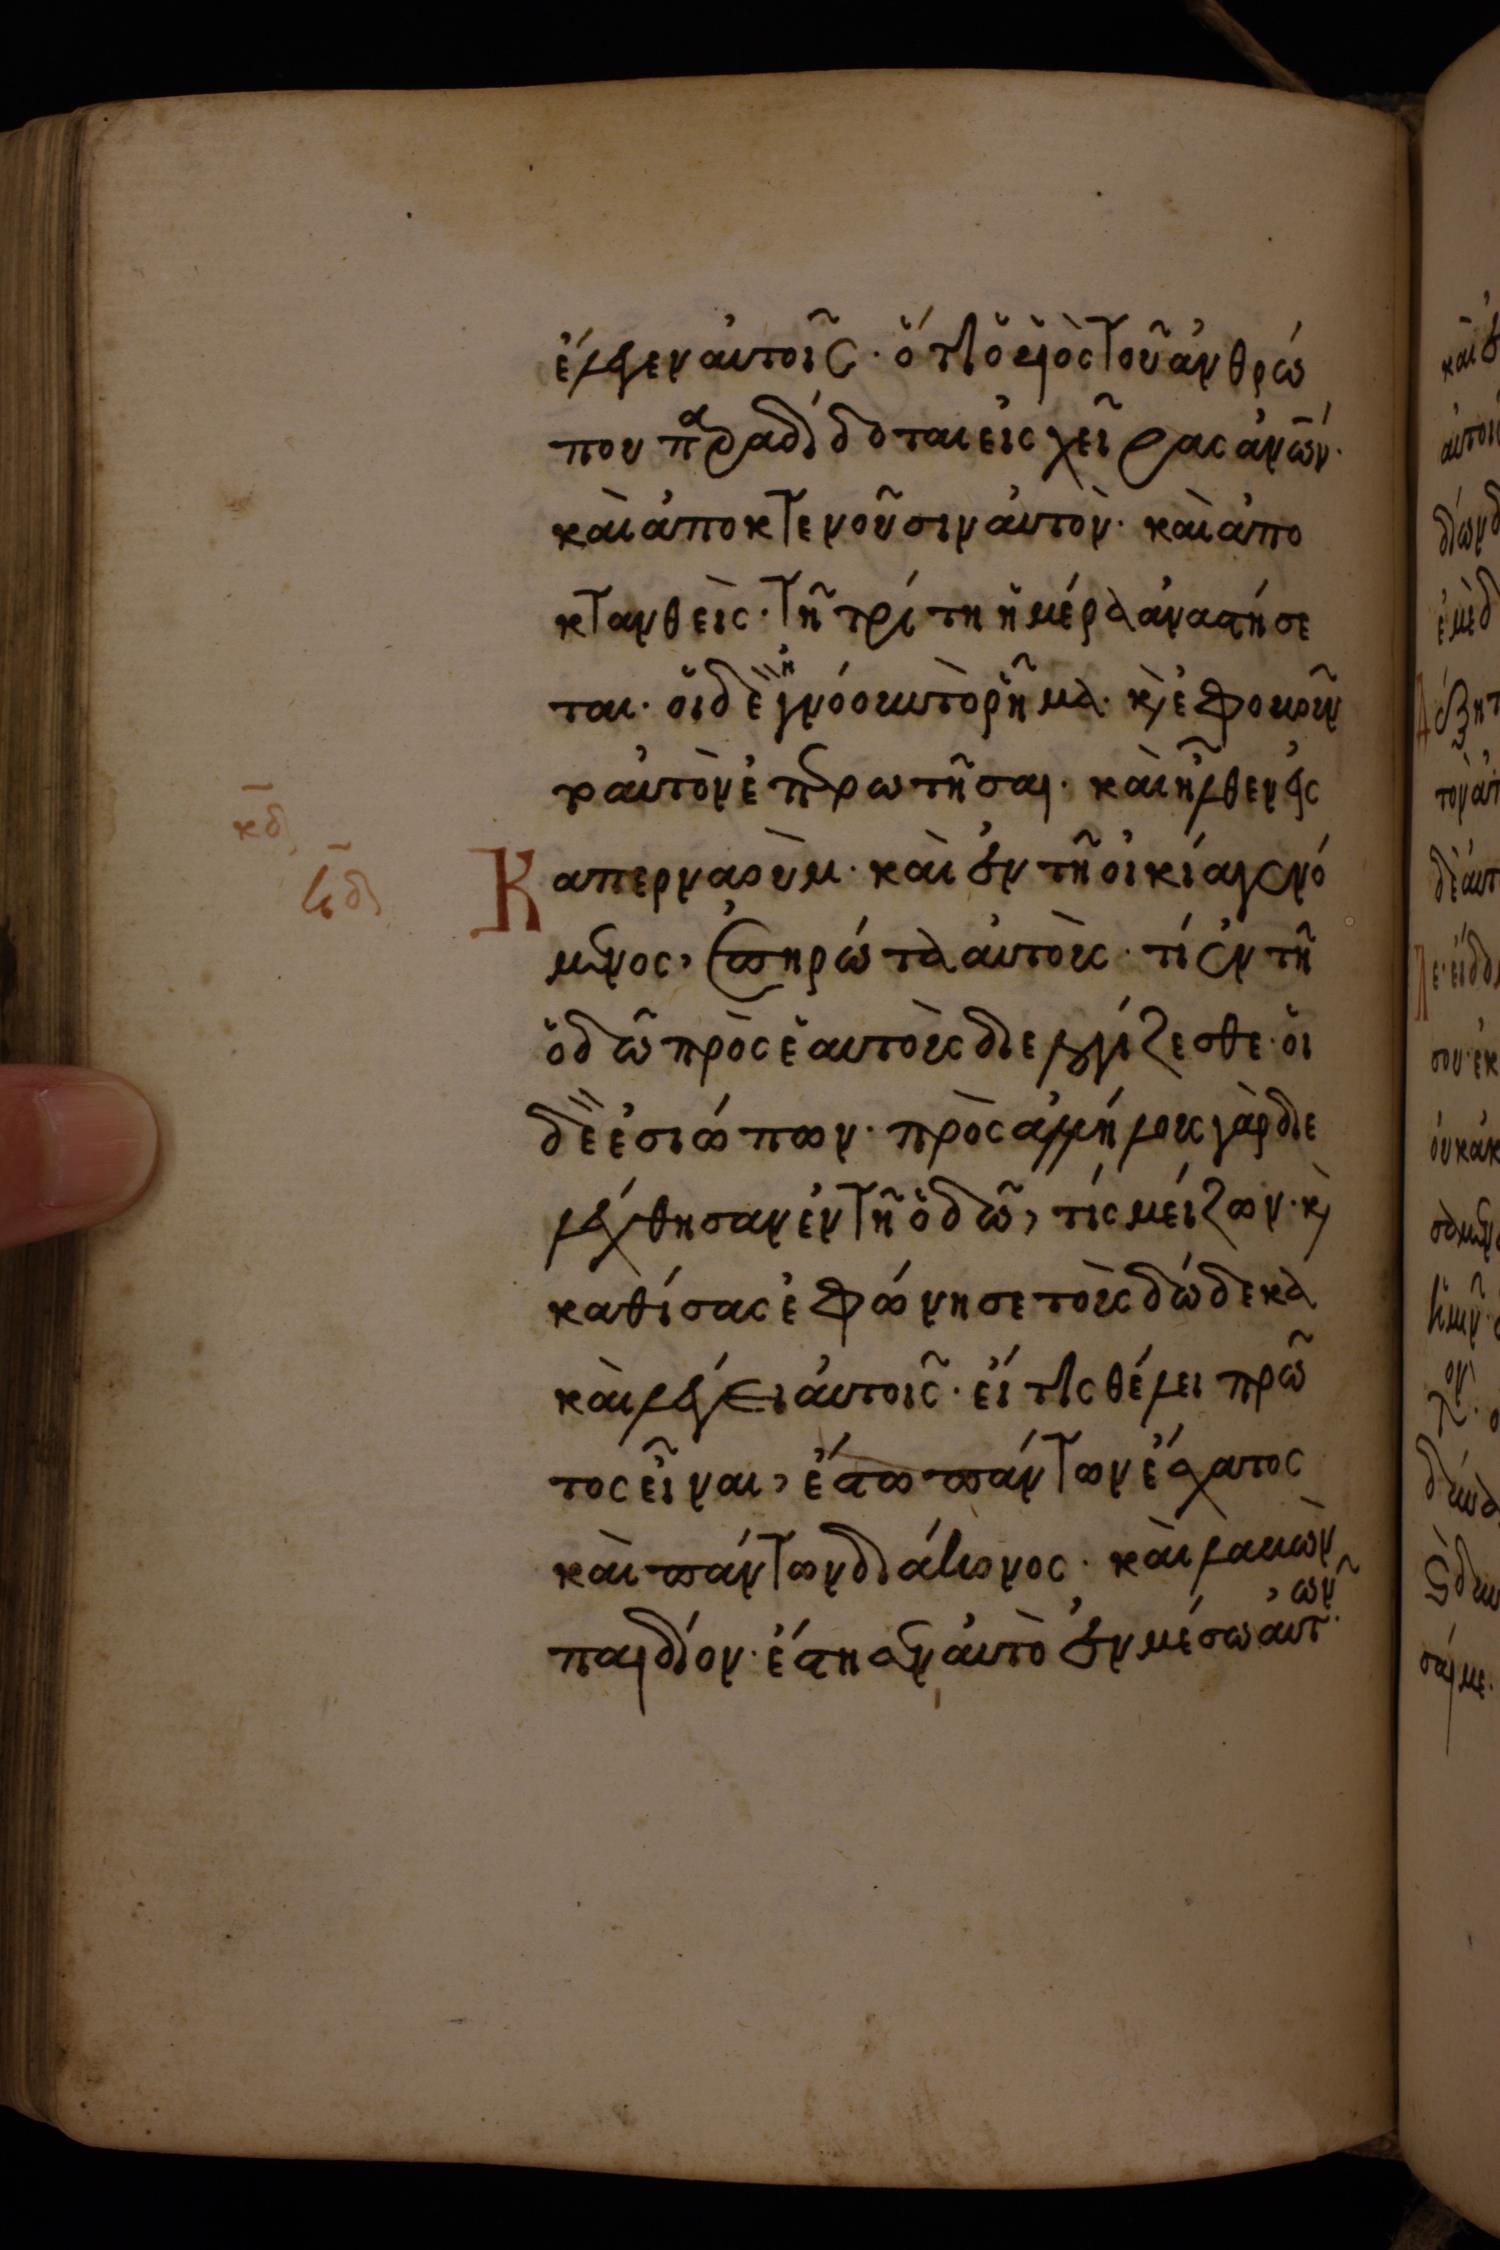 ἔλεγεν αὐτοῖς · ὅτι ὁ υἱὸς τοῦ ἀνθρώ
που παραδίδοται εἰς χεῖρας ἀνῶν ·
καὶ ἀποκτενοῦσιν αὐτὸν · καὶ ἀπο
κτανθεὶς · τῆ τρίτη ἡμέρα ἀναστήσε
ται · οἱ δὲ ἠγνόουν τὸ ῥῆμα · κ ἐφοβοῦν
το αὐτὸν ἐπερωτῆσαι · καὶ ἦλθεν εἰς
κδ
Ϟδ
Καπερναοὺμ · καὶ ἐν τῆ οἰκία γενό
μενος, ἐπηρώτα αὐτοὺς · τί ἐν τῆ
ὁδῶ πρὸς ἑαυτοὺς διελογίζεσθε · οἱ
δὲ ἐσιώπων · πρὸς ἀλλήλους γὰρ διε
λέχθησαν ἐν τῆ ὁδῶ, τίς μείζων · κ
καθίσας ἐφώνησε τοὺς δώδεκα
καὶ λέγει αὐτοῖς · εἴ τις θέλει πρῶ
τος εἶναι, ἔστω πάντων ἔσχατος
καὶ πάντων διάκονος · καὶ λαβὼν
παιδίον · ἔστησεν αὐτὸ ἐν μέσω αὐτῶν ·